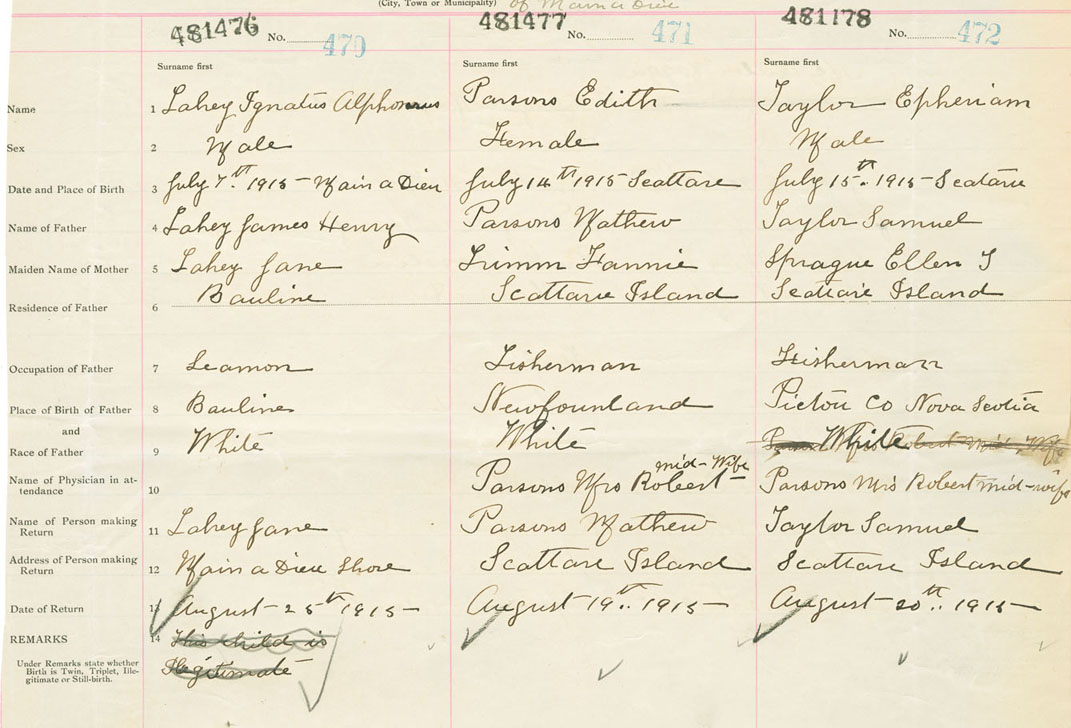 (City, Town or Municipality) of Main a Dieu
481476 No. 470
481477 No. 471
481178 No. 472
Surname first Surname first Surname first
Name 1 Lahey Ignatus Alphonsus Parsons Edith Taylor Epheriam
Sex 2 Male Female Male
Date and Place of Birth 3 July 7th 1915 - Main a Dieu July 14th 1915 Scattare July 15th 1915 - Scatarie
Name of Father 4 Lahey James Henry Parsons Mathew Taylor Samuel
Maiden Name of Mother 5 Lahey Jane Trimm Fannie Sprague Ellen J
Residence of Father 6 Bauline Scattarie Island Scattarie Island
Occupation of Father 7 Seamon Fisherman Fisherman
Place of Birth of Father 8 Bauline Newfounland Pictou Co Nova Scotia
and
Race of Father 9 White White White
Name of Physician in at-
tendance 10 Parsons Mrs Robert mid-Wife Parsons Mrs Robert mid-wife
Name of Person making
Return 11 Lahey Jane Parsons Mathew Taylor Samuel
Address of Person making
Return 12 Main a Dieu Shore Scattare Island Scattare Island
Date of Return 13 August 25th 1915 August 19th 1915 August 20th 1915
REMARKS 14 This child is
Under Remarks state whether
Birth is Twin, Triplet, Ille-
gitimate or Still-birth.
Illegitimate